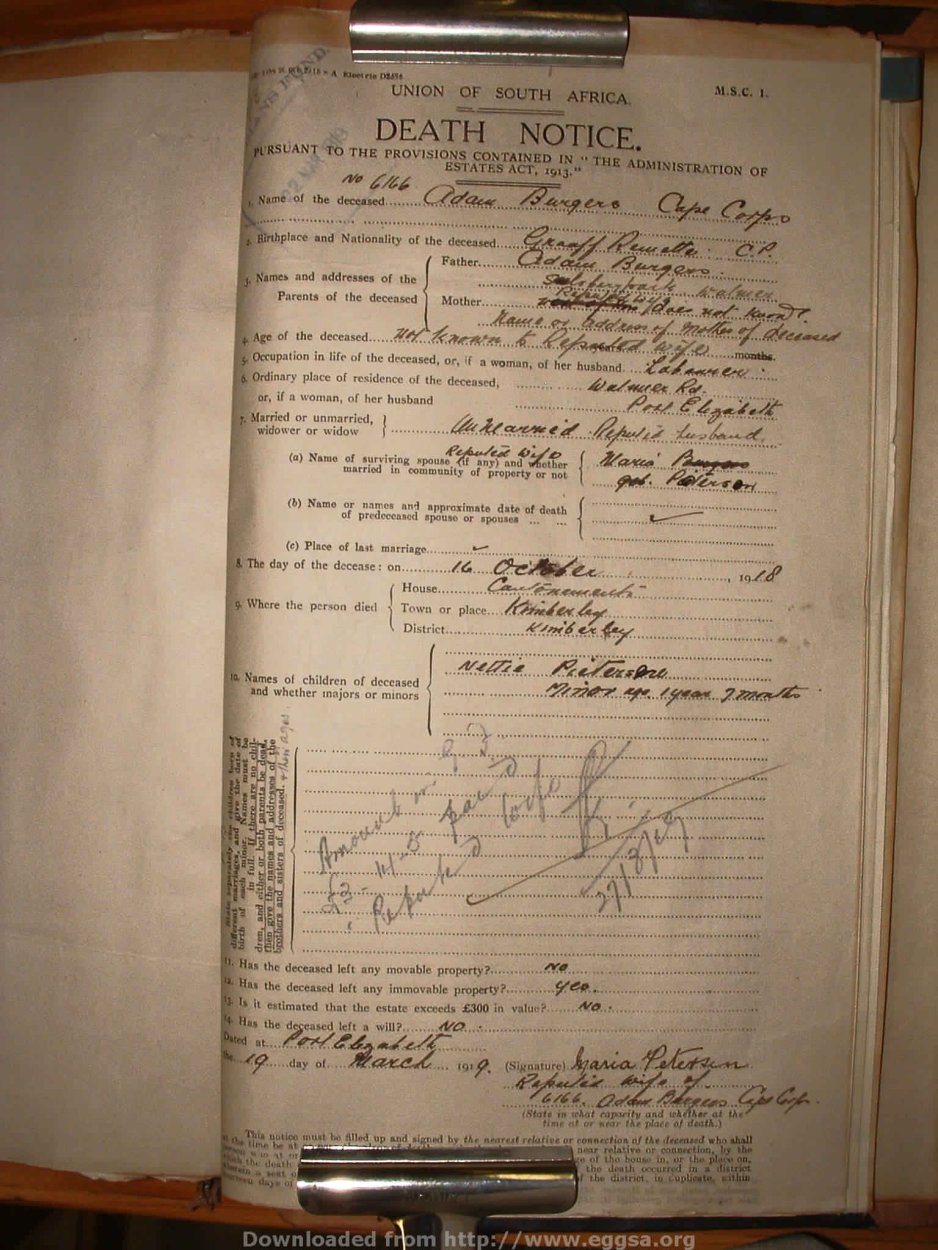 UNION OF SOUTH AFRICA.
M.S.C. 1.
DEATH NOTICE.
PURSUANT TO THE PROVISIONS CONTAINED IN "THE ADMINISTRATION OF
ESTATES ACT, 1913."
No 6166
1. Name of the deceased Adam Burgers Cape Corps
2. Birthplace and Nationality of the deceased Graaff Reinette. C.P.
3. Names and addresses of the Parents of the deceased
Father Adam Burgers
Walmer
Mother Reputed wife does not know
name or address of mother of deceased
4. Age of the deceased not known to Reputed wife months.
5. Occupation in life of the deceased, or, if a woman, of her husband Labourer
6. Ordinary place of residence of the deceased, Walmer Rd.
or, if a woman, of her husband Port Elizabeth
7. Married or unmarried, widower or widow } Unmarried Reputed husband
Reputed Wife
(a) Name of surviving spouse (if any) and whether married in community of property or not { Maria Burgers
geb. Peterson
(b) Name or names and approximate date of death of predeceased spouse or spouses ... ...
(c) Place of last marriage
8. The day of the decease: on 16 October, 1918
9. Where the person died
House Cantonements
Town or place Kimberley
District Kimberley
10. Names of children of deceased and whether majors or minors
Nettie Pieterson
Minor age 1 year 7 months
State separately the children born of
different marriages, and give the date of
birth of each minor. Names must be
in full. If there are no chil-
dren, and either or both parents be dead,
then give the names and addresses of the
brothers and sisters of deceased. & their ages.
Amount in
£3-14-5 paid
Reported wife
27/3/29
11. Has the deceased left any movable property? No
12. Has the deceased left any immovable property? yes.
13. Is it estimated that the estate exceeds £300 in value? No.
14. Has the deceased left a will? No.
Dated at Port Elizabeth
the 19 day of March 1919. (Signature) Maria Petersen
Reputed wife of
6166. Adam Burgers Cape Corps.
(State in what capacity and whether at the
time of or near the place of death.)
This notice must be filled up and signed by the nearest relative or connection of the deceased who shall
at the time be at
near relative or connection, by the
of the house in, or the place on,
which the death
the death occurred in a district
of the district, in duplicate, within
days of
Downloaded from http://www.eggsa.org